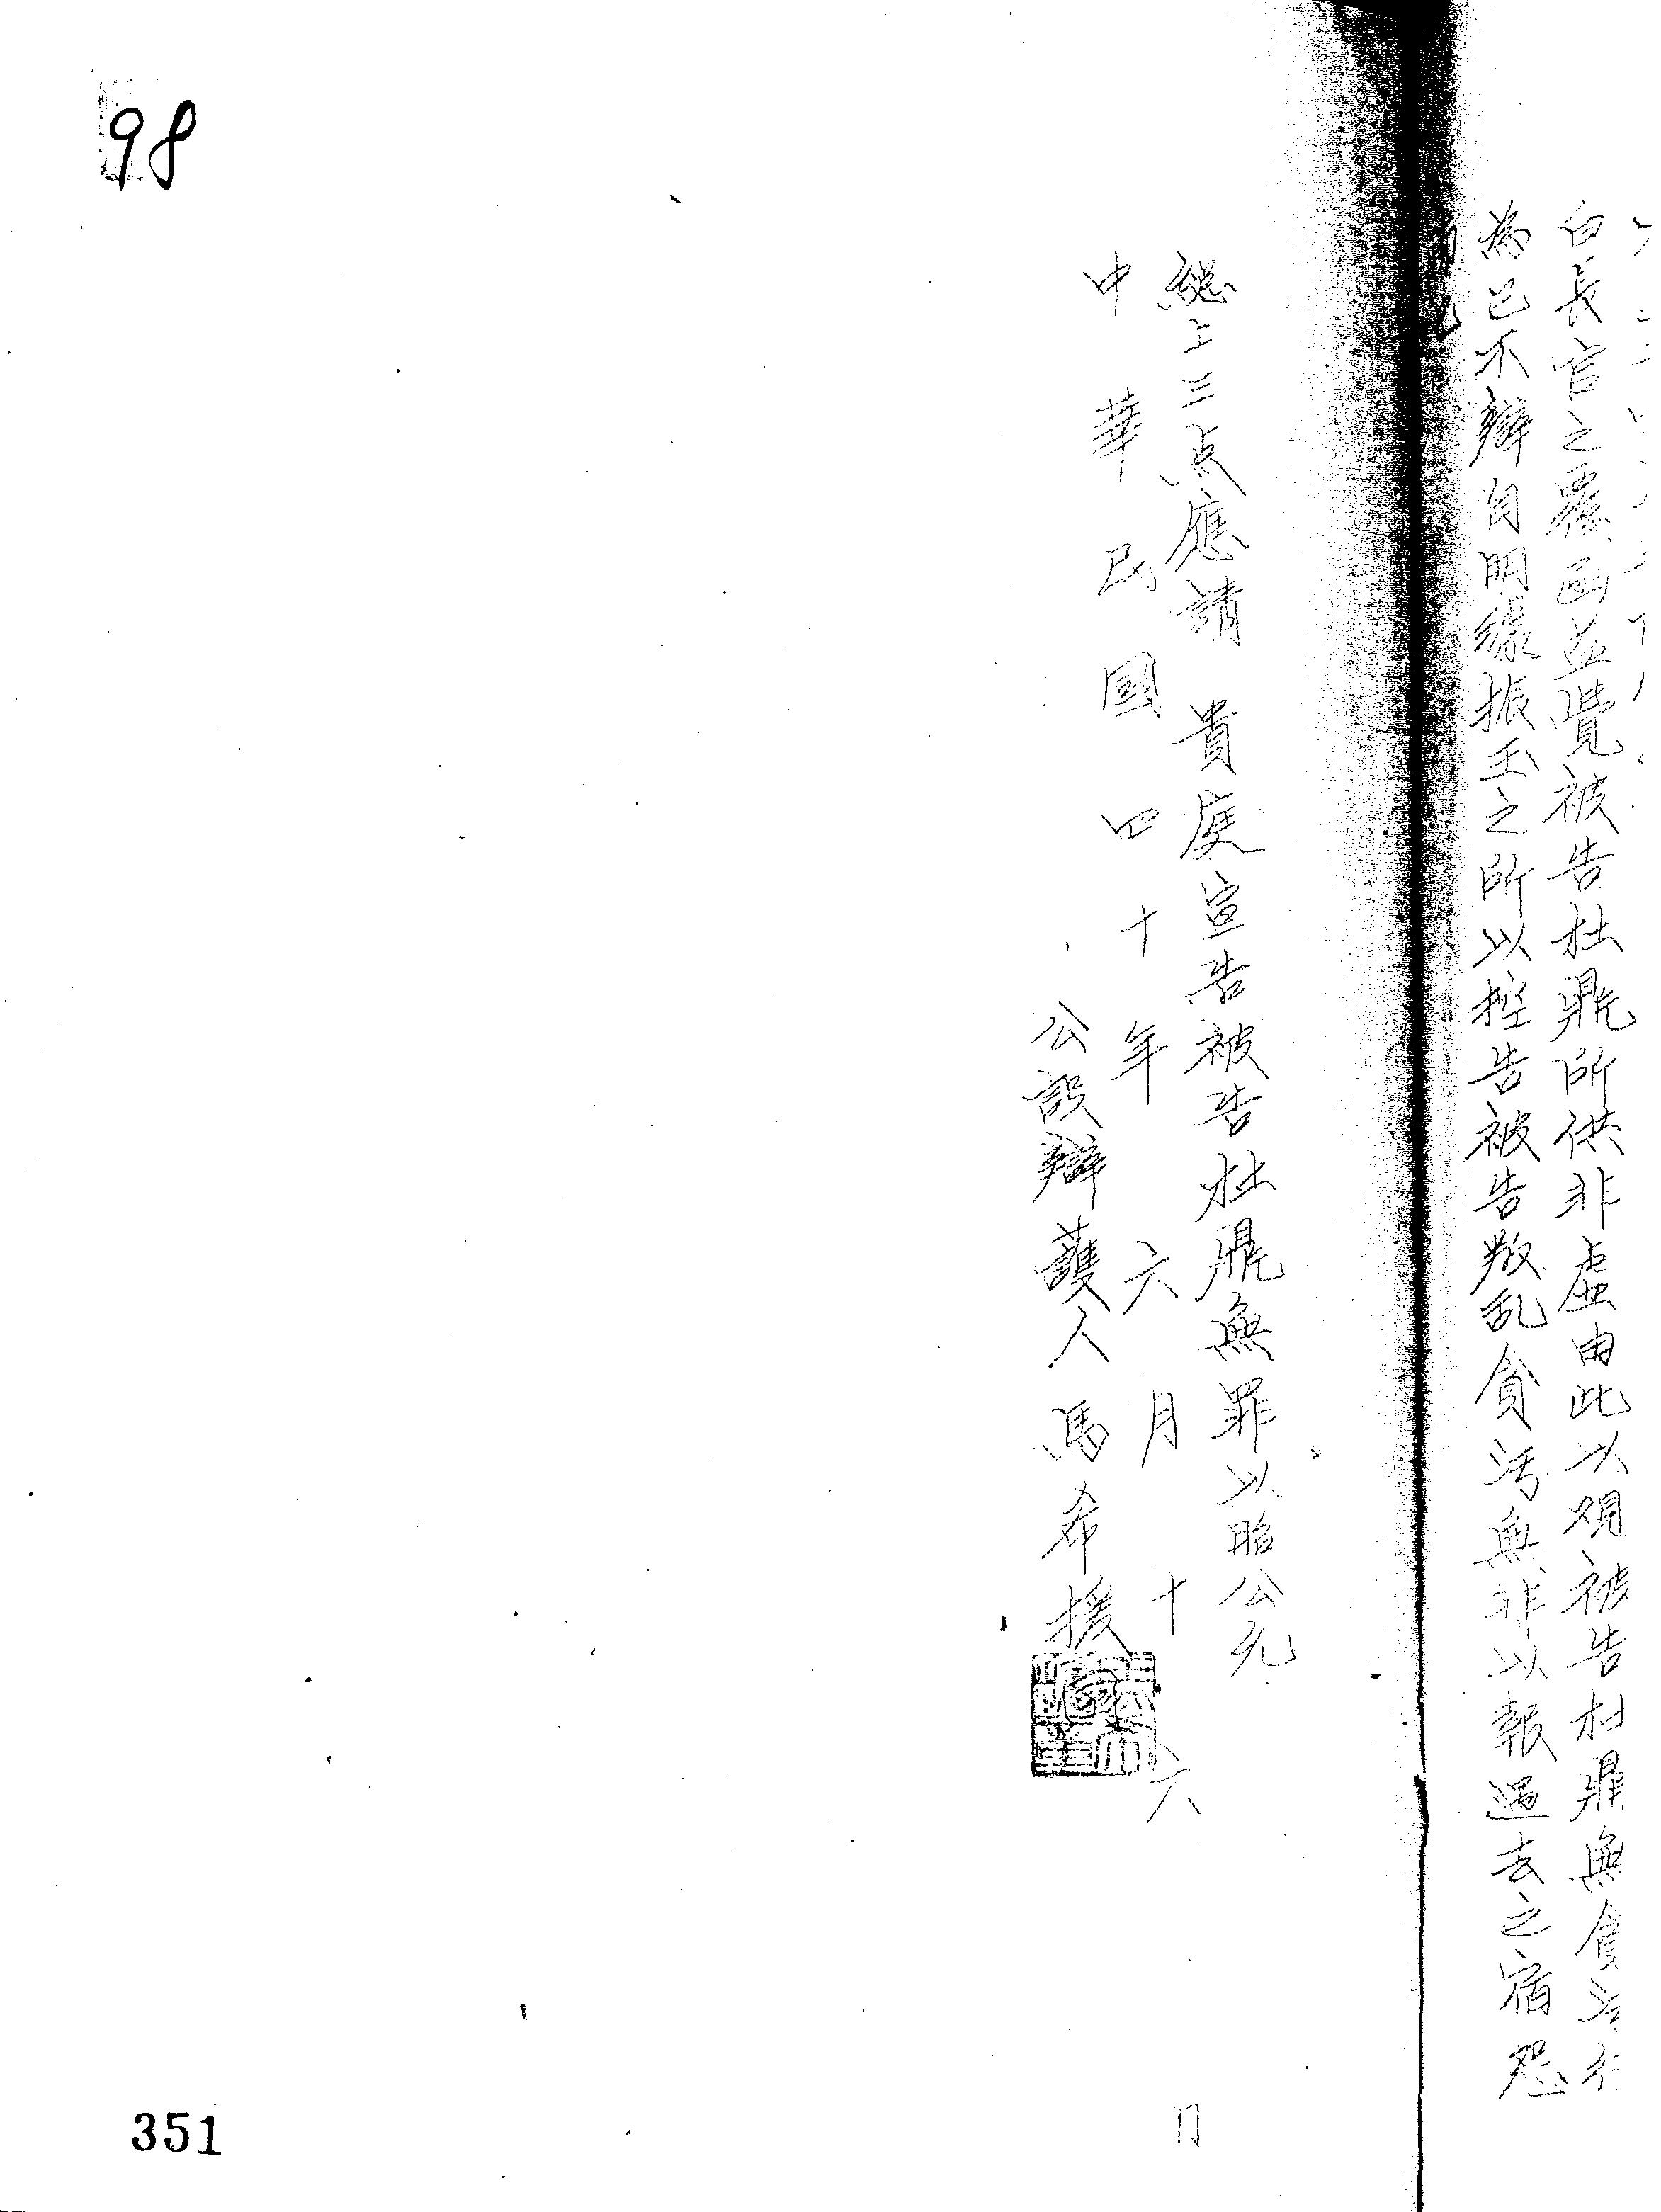 白長官之覆函益覺被告杜鼎所供非虛由此以觀被告杜鼎無貪污行
為已不辯自明緣振玉之所以控告被告叛乱貪污無非以報過去之宿怨
總上三点應請 貴庭宣告被告杜鼎無罪以昭公允
中華民國四十年六月十六日
公設辯護人馬希援
98
351